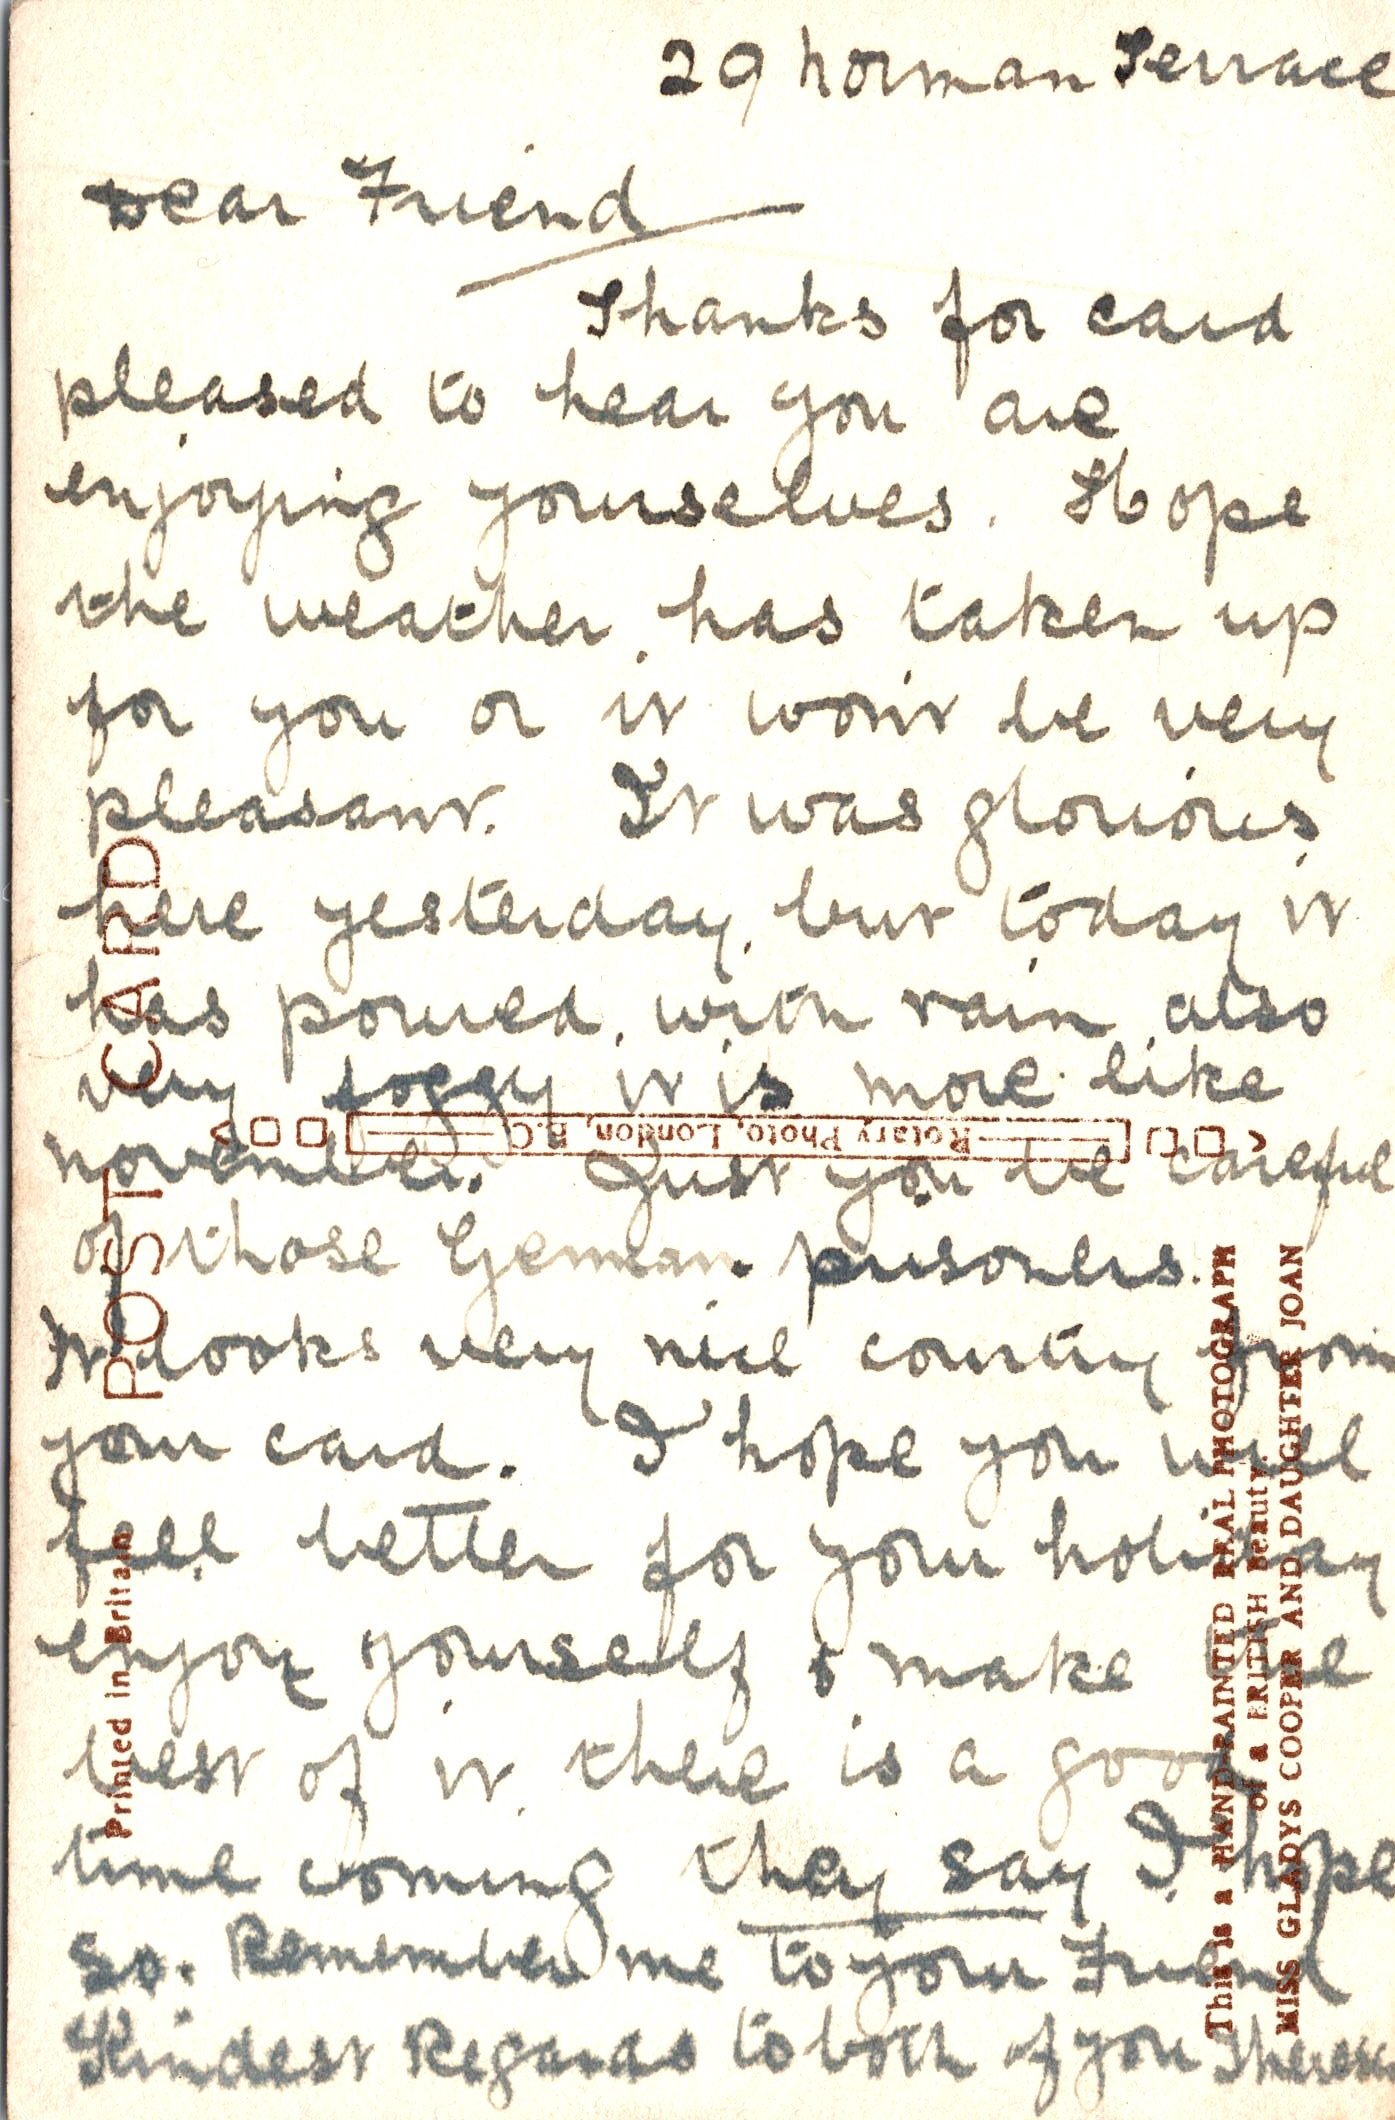 29 Norman Terrace
Dear Friend
Thanks for card
pleased to hear you are
enjoying yourselves. Hope
the weather has taken up
for you or it won't be very
pleasant. It was glorious
here yesterday, but today it
has poured, with rain also
very foggy it is more like
november. Just you be careful
of those German prisoners.
It looks very nice country from
your card. I hope you will
feel better for your holiday
enjoy yourself & make the
best of it, there is a good
time coming they say I hope
so. Remember me to your Friend
Kindest Regards to both of you Theresa
POST CARD
Printed in Britain
Rotary Photo, London, E.C.
This is a HAND-PAINTED REAL PHOTOGRAPH
of a BRITISH Beauty.
MISS GLADYS COOPER AND DAUGHTER JOAN